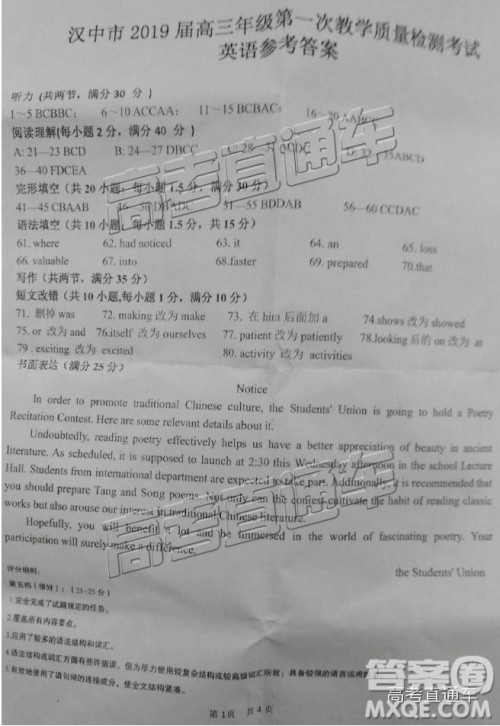 汉中市 2019 届高三年级第一次教学质量检测考试
英语参考答案
听力 (共两节，满分 30 分)
1～5 BCBBC; 6～10 ACCAA; 11～15 BCBAC; 16～20
阅读理解(每小题 2 分，满分 40 分)
A: 21—23 BCD B: 24—27 DBCC 28—31 D: 32—35ABCD
36—40 FDCEA
完形填空（共 20 小题；每小题 1.5 分，满分 30 分）
41—45 CBAAB 46—50 DBADC 51—55 BDDAB 56—60 CCDAC
语法填空（共 10 小题；每小题 1.5 分，共 15 分）
61. where 62. had noticed 63. it 64. an 65. loss
66. valuable 67. into 68.faster 69. prepared 70.that
写作（共两节，满分 35 分）
短文改错（共 10 小题,每小题 1 分，满分 10 分）
71. 删掉 was 72. making 改为 make 73. 在 him 后面加 a 74.shows 改为 showed
75. or 改为 and 76.itself 改为 ourselves 77. patient 改为 patiently 78.looking 后的 on 改为 at
79 . exciting 改为 excited 80. activity 改为 activities
书面表达（满分 25 分）
Notice
In order to promote traditional Chinese culture, the Students' Union is going to hold a Poetry
Recitation Contest. Here are some relevant details about it.
Undoubtedly, reading poetry effectively helps us have a better appreciation of beauty in ancient
literature. As scheduled, it is supposed to launch at 2:30 this Wednesday afternoon in the school Lecture
Hall. Students from international department are expected to take part. Additionally, it is recommended that
you should prepare Tang and Song poems. Not only can the contest cultivate the habit of reading classic
works but also arouse our interest in traditional Chinese literature.
Hopefully, you will benefit a lot and be immersed in the world of fascinating poetry. Your
participation will surely make a difference.
the Students' Union
评分细则:
第五档 (很好): (21-25 分)
1.完全完成了试题规定的任务。
2.覆盖所有内容要点。
3.应用了较多的语法结构和词汇。
4.语法结构或词汇方面有些许错误，但为尽力使用较复杂结构或较高级词汇所致；具备较强的语言运用
5.有效地使用了语句间的连接成分，使全文结构紧凑。
第 1页 共 4 页
高考直通车
高考直通车
答案圈
高考直通车